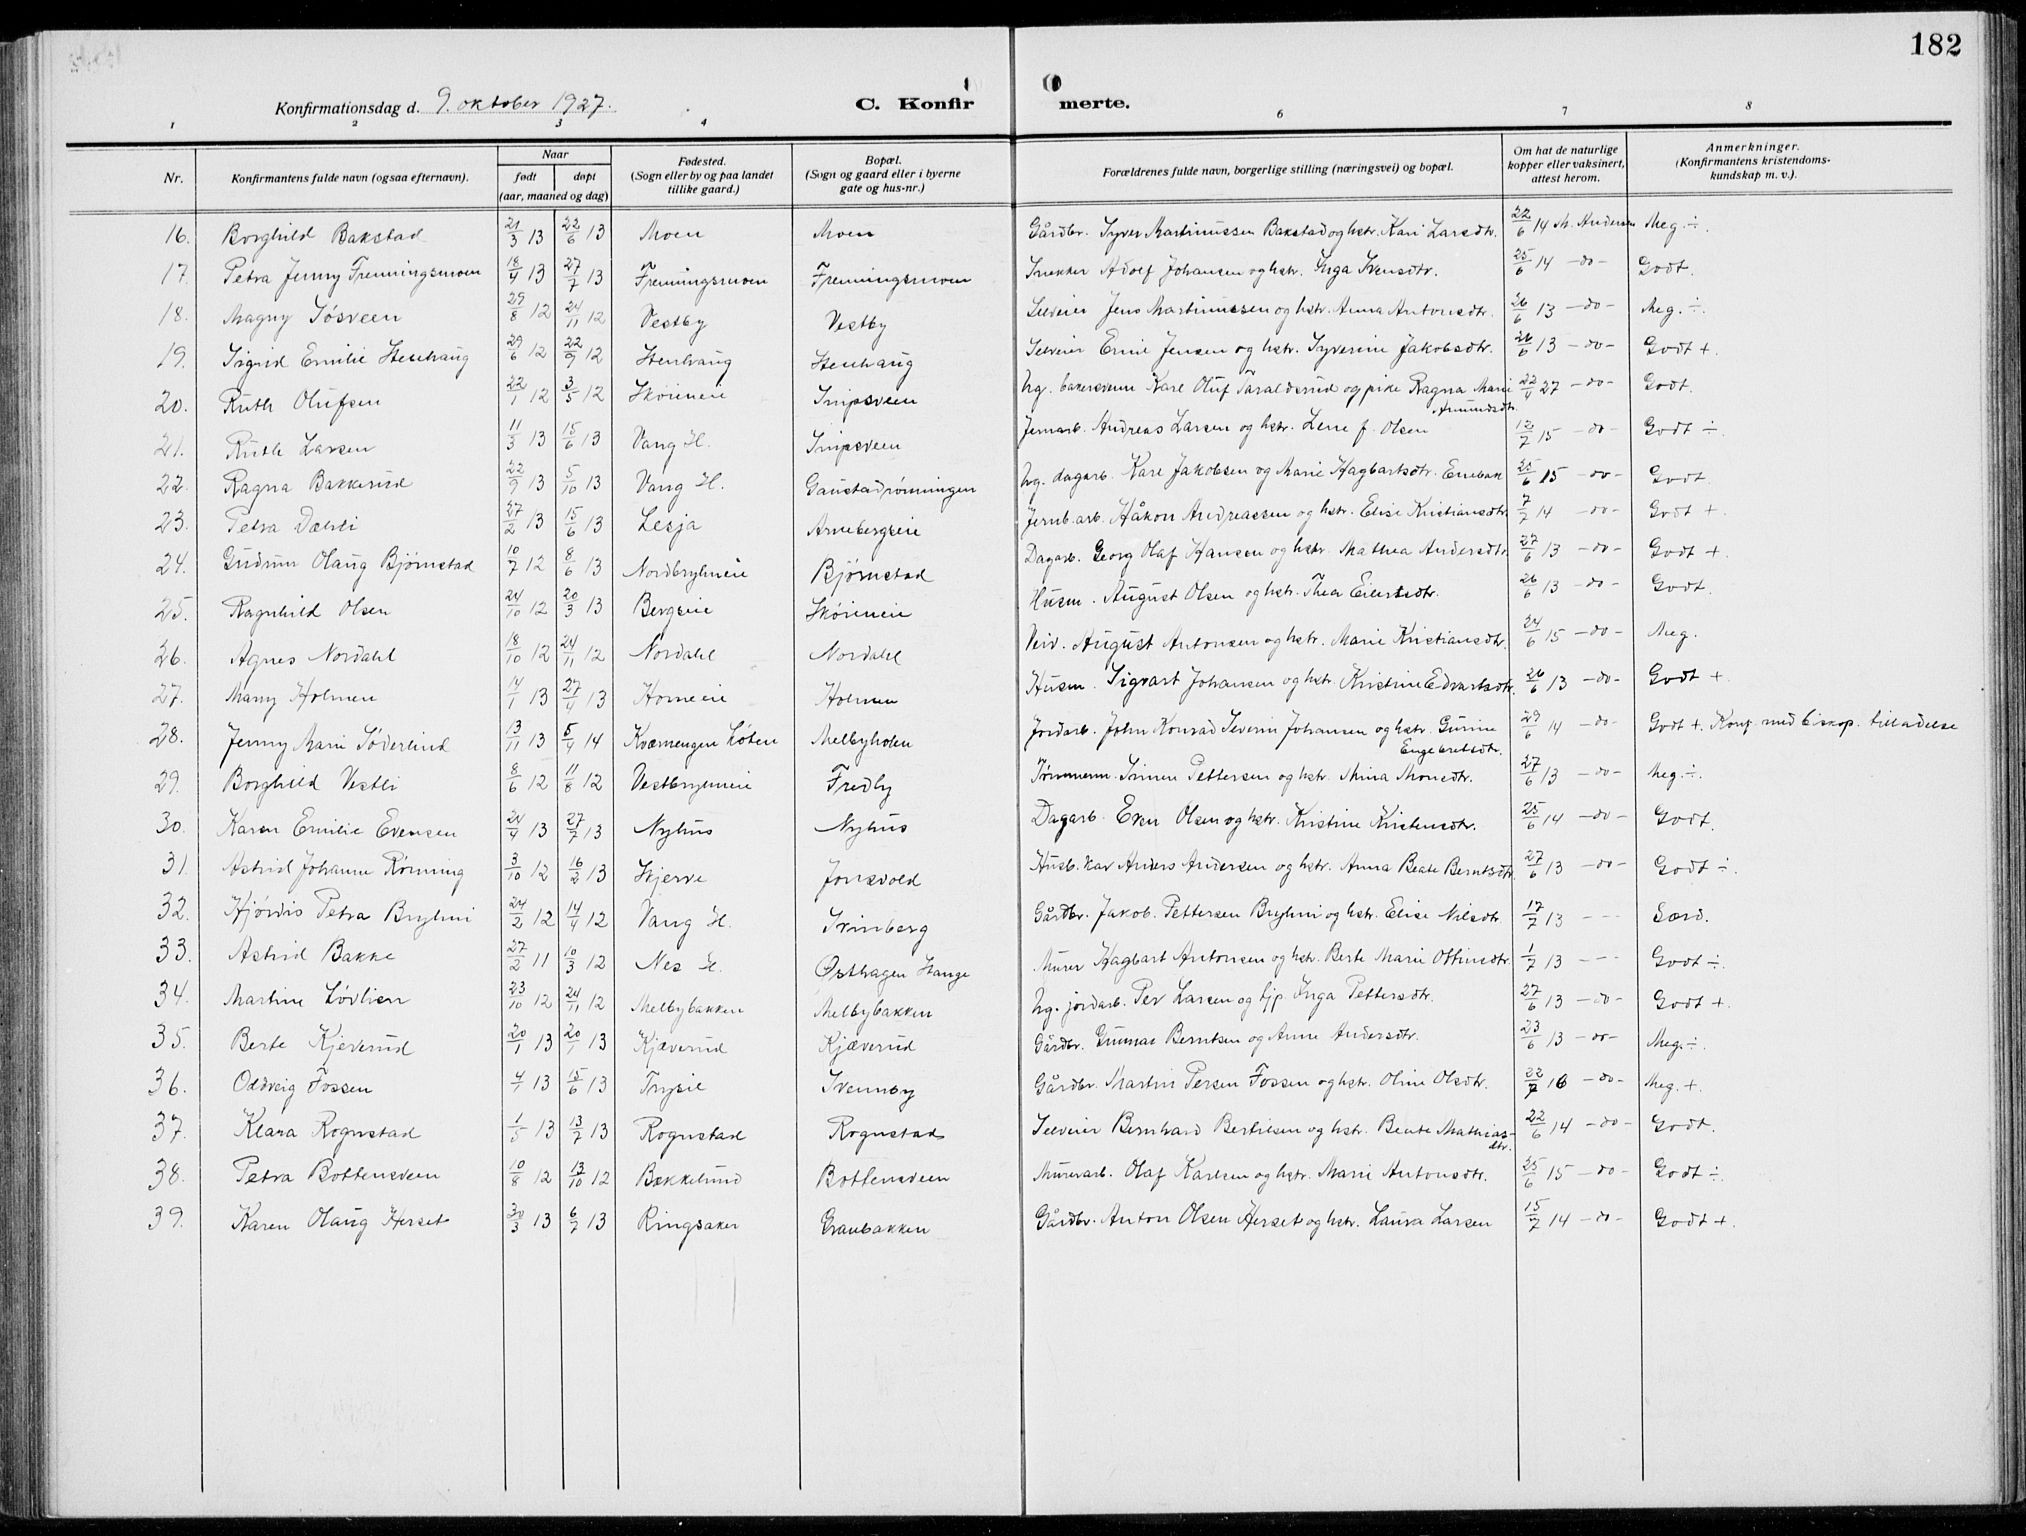 182
Konfirmationsdag d. 9. oktober 1927. C. Konfir merte.
1 2 3 4 6 7 8
Nr. Konfirmantens fulde navn (ogsaa efternavn). Naar født døpt (aar, maaned og dag) Fødested. (Sogn eller by og paa landet tillike gaard.) Bopæl. (Sogn og gaard eller i byerne gate og hus-nr.) Forældrenes fulde navn, borgerlige stilling (næringsvei) og bopæl. Om hat de naturlige kopper eller vaksinert, attest herom. Anmerkninger. (Konfirmantens kristendoms-kundskap m. v.).
16. Borghild Bakstad 21/3 13 22/6 13 Moen Moen Gårdbr. Syver Martinussen Bakstad og hstr. Kari Larsdtr. 22/6 14 M. Andersen Meg. ÷.
17. Petra Jenny Frenningsmoen 18/4 13 27/7 13 Frenningsmoen Frenningsmoen Snekker Adolf Johansen og hstr. Inga Svensdtr. 25/6 14 -do- Godt.
18. Magny Tøsveen 29/8 12 24/11 12 Vestby Vestby Selveier Jens Martinussen og hstr. Anna Antonsdtr. 26/6 13 -do- Meg. ÷.
19. Sigrid Emilie Stenhaug 29/6 12 22/9 12 Stenhaug Stenhaug Selveier Emil Jensen og hstr. Syverine Jakobsdtr. 26/6 13 -do- Godt +.
20. Ruth Olufsen 22/1 12 3/5 12 Skøieneie Snipsveen Ug. bakersvenn Karl Oluf Taraldsrud og pike Ragna Marie 22/4 27 -do- Godt.
Amundsdtr.
21. Ruth Larsen 11/3 13 15/6 13 Vang H. Snipsveen Jernarb. Andreas Larsen og hstr. Lene f. Olsen 12/7 15 -do- Godt ÷
22. Ragna Bakkerud 22/9 13 5/10 13 Vang H. Gaustadrønningen Ug. dagarb. Karl Jakobsen og Marie Hagbartsdtr. Enebak 25/6 15 -do- Godt.
23. Petra Dælsli 27/2 13 15/6 13 Lesja Arnebergseie Jernb.arb. Håkon Andreassen og hstr. Elise Kristiansdtr. 7/7 14 -do- Godt +
24. Gudrun Olaug Bjørnstad 10/7 12 8/6 13 Nordbrynieie Bjørnstad Dagarb. Georg Olaf Hansen og hstr. Mathea Andersdtr. 27/6 13 -do- Godt +
25. Ragnhild Olsen 24/10 12 20/3 13 Bergseie Skøieneie Husm. August Olsen og hstr. Thea Eilertsdtr. 26/6 13 -do- Godt.
26. Agnes Nordahl 18/10 12 24/11 12 Nordahl Nordahl Veiv. August Antonsen og hstr. Marie Kristiansdtr. 24/6 15 -do- Meg.
27. Mary Holmen 14/1 13 27/4 13 Horneeie Holmen Husm. Sigvart Johansen og hstr. Kristine Edvartsdtr. 26/6 13 -do- Godt +
28. Jenny Marie Søderlind 13/11 13 5/4 14 Kværnengen Løten Melbyholen Jordarb. John Konrad Severin Johansen og hstr. Gurine 29/6 14 -do- Godt +. Konf. med biskop. tilladelse
Engebretsdtr.
29. Borghild Vestli 8/6 12 11/8 12 Vestbrynieie Fredly Tømmerm. Simen Pettersen og hstr. Mina Monsdtr. 27/6 13 -do- Meg. ÷.
30. Karen Emilie Evensen 24/4 13 27/7 13 Nyhus Nyhus Dagarb. Even Olsen og hstr. Kristine Kristensdtr. 25/6 14 -do- Godt.
31. Astrid Johanne Rønning 3/10 12 16/2 13 Skjerve Jonsvold Husb.kar Anders Andersen og hstr. Anna Beate Berntsdtr. 27/6 13 -do- Godt ÷.
32. Hjørdis Petra Bryhni 24/2 12 14/4 12 Vang H. Svinberg Gårdbr. Jakob Pettersen Bryhni og hstr. Elise Nilsdtr. 17/7 13 - - - Særd.
33. Astrid Bakke 27/2 11 10/3 12 Nes H. Østhagen Stange Murer Hagbart Antonsen og hstr. Berte Marie Ottinsdtr. 1/7 13 - - - Godt ÷.
34. Martine Løvlien 23/10 12 24/11 12 Melbybakken Melbybakken Ug. jordarb. Per Larsen og tjp. Inga Pettersdtr. 27/6 13 -do- Godt +.
35. Berte Kjeverud 20/1 13 20/1 13 Kjæverud Kjæverud Gårdbr. Gunnar Berntsen og Anne Andersdtr. 23/6 13 -do- Meg. ÷.
36. Oddveig Fossen 4/1 13 15/6 13 Trysil Svennby Gårdbr. Martin Persen Fossen og hstr. Oline Olsdtr. 22/7 16 -do- Meg. +.
37. Klara Rognstad 1/5 13 13/7 13 Rognstad Rognstad Selveier Bernhard Bertilsen og hstr. Beate Mathias- 22/6 14 -do- Godt.
dtr.
38. Petra Bottensveen 10/8 12 13/10 12 Bækkelund Bottensveen Murerarb. Olaf Karlsen og hstr. Marie Antonsdtr. 25/6 15 -do- Godt ÷.
39. Karen Olaug Herset 30/3 13 6/7 13 Ringsaker Granbakken Gårdbr. Anton Olsen Herset og hstr. Laura Larsen 15/7 14 -do- Godt +.